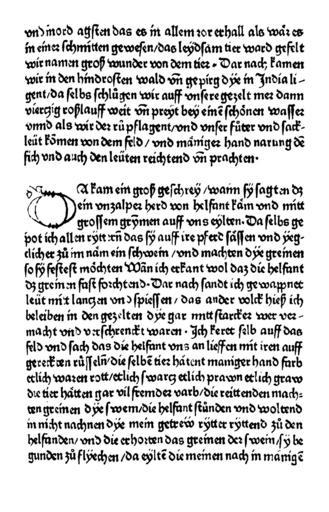 vnd mord agsten das es in allem wor erhall als wår es
in einer schmitten gewesen/das leydsam tier ward gefelt
wir namen groß wunder von dem tier · Dar nach kamen
wir in den hindrosten wald vñ gepirg dye in Jndia li⸗
gent/da selbs schlůgen wir auff vnsere gezelt mer dann
vierczig roßlauff weit vñ preyt bey einē schönen wasser
vnnd als wir der rů pflagent/vnd vnser fůter vnd sack⸗
leüt kömen von dem feld / vnd mäniger hand narung dē
fich vnd auch den leüten reichtend vñ prachten ·
DA kam ein groß geschrey/wann sy sagten dz
ein vnzalper herd von helfant kām vnd mitt
grossem grymen auff vns eylten. Da selbs ge
pot ich allen rytterñ das sy auff ire pferd sässen vnd yeg⸗
clicher zů im näm ein schwein / vnd machten dye greinen
so sy festest möchten Wān ich erkant wol daz die helfant
dz greinen fast forchtend · Dar nach sandt ich gewapnet
leüt mit lanczen vnd spiessen / das ander volck hieß ich
beleiben in den gezelten dye gar mitt starcker wer ver⸗
macht vnd verschrenckt waren · Jch keret selb auff das
feld vnd sach das die helfant vns an lieffen mit iren auff
gereckten rüsseln/die selbē tier hatent maniger hand farb
etlich waren rott/etlich swarcz etlich prawn etlich graw
die tier hätten gar vil fremder varb/die reittenden mach⸗
ten greinen dye swein/die helfant stůnden vnd woltend
in nicht nachnen dye mein getrew rytter ryttend zů den
helfanden/vnd die erhorten das greinen der swein/sy be
gunden zů flyechen/da eyltē die meinen nach in mänigē